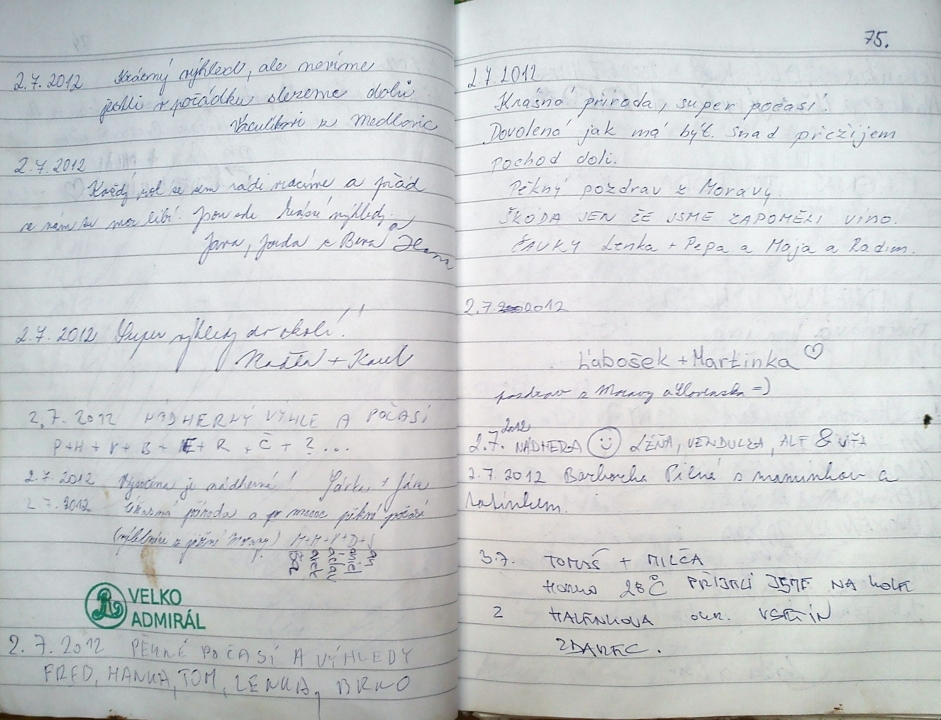 2.7.2012 Krásný výhled, ale nevíme
jestli v pořádku slezeme dolů
Vaculíkovi z Medlovic
2.7.2012
Každý rok se sem rádi vracíme a pořád
se nám tu moc líbí.
Jana, Jarda
2.7.2012 Super výhledy do okolí!
+ Karel
2.7.2012 NÁDHERNÝ VÝHLE A POČASÍ
P+H+V+B+E+R+Č+?...
2.7.2012 Vysočina je nádherná! Šárka + Jára
2.7.2012 Krásná příroda a pěkné
M+M+V+D+J
arek
áclav
aniel
an
VELKO
ADMIRÁL
2.7.2012 PĚKNÉ POČASÍ A VÝHLEDY
FRED, HANKA, TOM, LENKA, BRNO
75.
2.7.2012
Krásná příroda, super počasí!
Dovolená jak má být. Snad přežijem
pochod dolů.
Pěkný pozdrav z Moravy.
ŠKODA JEN ŽE JSME ZAPOMĚLI VÍNO.
ČAUKY Lenka + Pepa a Maja a Radim.
2.7.2012
Ľubošek + Martinka ♡
pozdrav z Moravy a Slovenska =)
2.7. 2012 NÁDHERA ☺ LÉŇA, VENDULKA, ALF
2.7.2012 Barborka Pilná s maminkou a
tatínkem.
3.7. TOMÁŠ + MILČA
HORKO 28°C PŘIJELI JSME NA KOLE
Z HALENKOVA OKR. VSETÍN
ZDAREC.